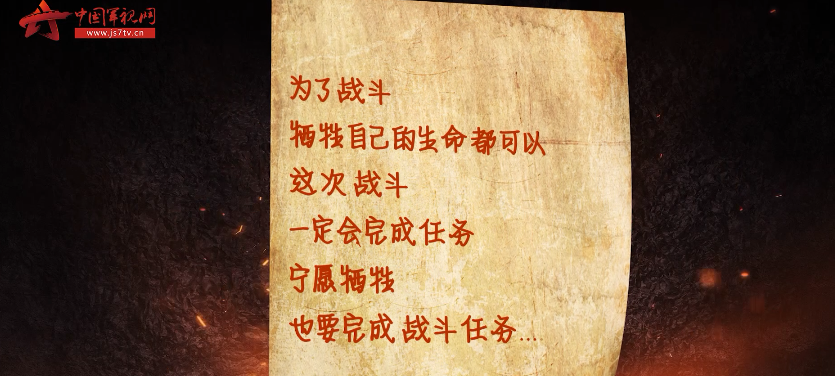 中国军视网
www.js7tv.cn
为了战斗
牺牲自己的生命都可以
这次战斗
一定会完成任务
宁愿牺牲
也要完成战斗任务....